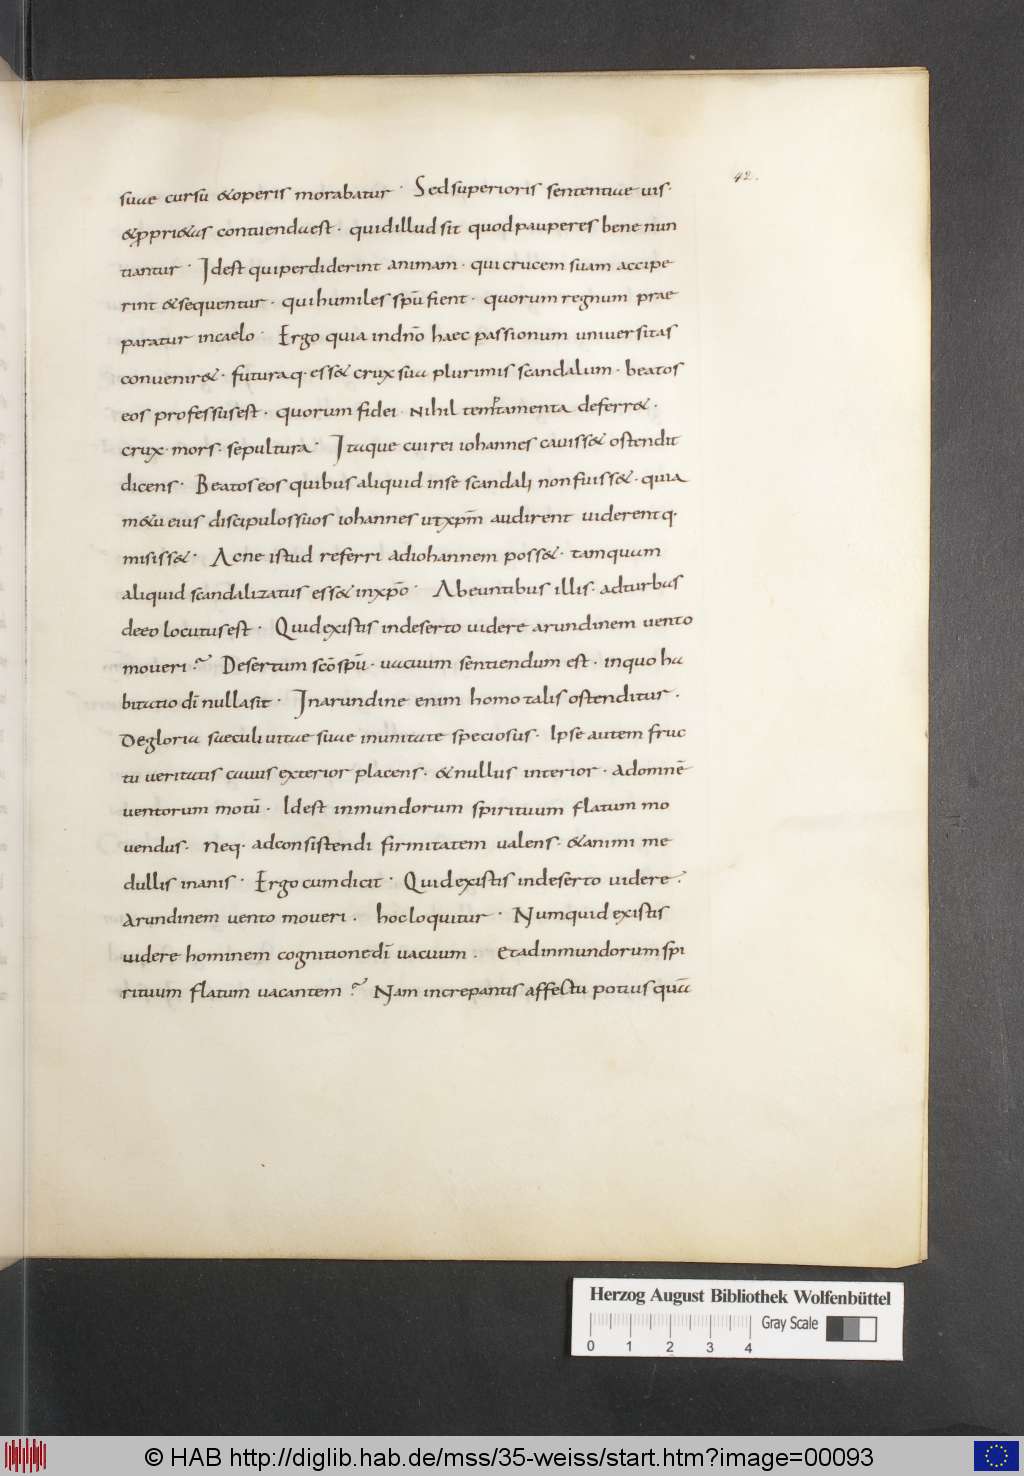 42.
suae cursu &operis morabatur · Sed superioris sententiae uis·
&p̱pri&as contuenda est · quid illud sit quod pauperes bene nun
tiantur · Idest qui perdiderint animam · qui crucem suam accipe
rint & sequentur · qui humiles spū fient · quorum regnum prae
paratur in caelo · Ergo quia in dnō haec passionum uniuersitas
conuenir& · futuraq· ess& crux sua plurimis scandalum · beatos
eos professus est · quorum fidei · nihil temptamenta deferr& ·
crux · mors · sepultura · Itaque cui rei iohannes cauiss& ostendit
dicens · Beatos eos quibus aliquid in se scandali non fuiss& · quia
m&u eius discipulos suos iohannes ut xpm̄ audirent uiderentq·
misiss& · Ac ne istud referri ad iohannem poss& · tamquam
aliquid scandalizatus ess& in xpō · Abeuntibus illis · ad turbas
de eo locutus est · Quid existis in deserto uidere arundinem uento
moueri ? Desertum scō spū · uacuum sentiendum est · in quo ha
bitatio dī nulla sit · In arundine enim homo talis ostenditur ·
De gloria saeculi uitae suae inunitate speciosus · Ipse autem fruc
tu ueritatis cauus exterior placens · & nullus interior · ad omnē
uentorum motū · Idest inmundorum spirituum flatum mo
uendus · neq· ad consistendi firmitatem ualens · & animi me
dullis inanis · Ergo cum dicit · Quid existis in deserto uidere ?
arundinem uento moueri . hoc loquitur · Numquid existis
uidere hominem cognitione dī uacuum . Et ad inmundorum spi
rituum flatum uacantem ? Nam increpantis affectu potius quā
Herzog August Bibliothek Wolfenbüttel
Gray Scale
0 1 2 3 4
© HAB http://diglib.hab.de/mss/35-weiss/start.htm?image=00093